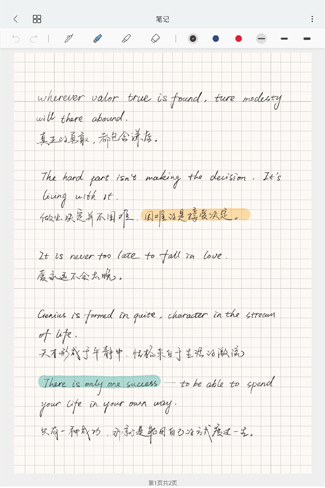 笔记
wherever valor true is found, ture modesty
will there abound.
真正的勇敢，都包含谦虚。
The hard part isn't making the decision. It's
living with it.
做出决定并不困难，困难的是接受决定。
It is never too late to fall in love.
爱永远不会太晚。
Genius is formed in quite, character in the stream
of life.
天才形成于平静中，性格来自于生活的激流
There is only one success — to be able to spend
your life in your own way.
只有一种成功，那就是能用自己的方式度过一生。
第1页共2页